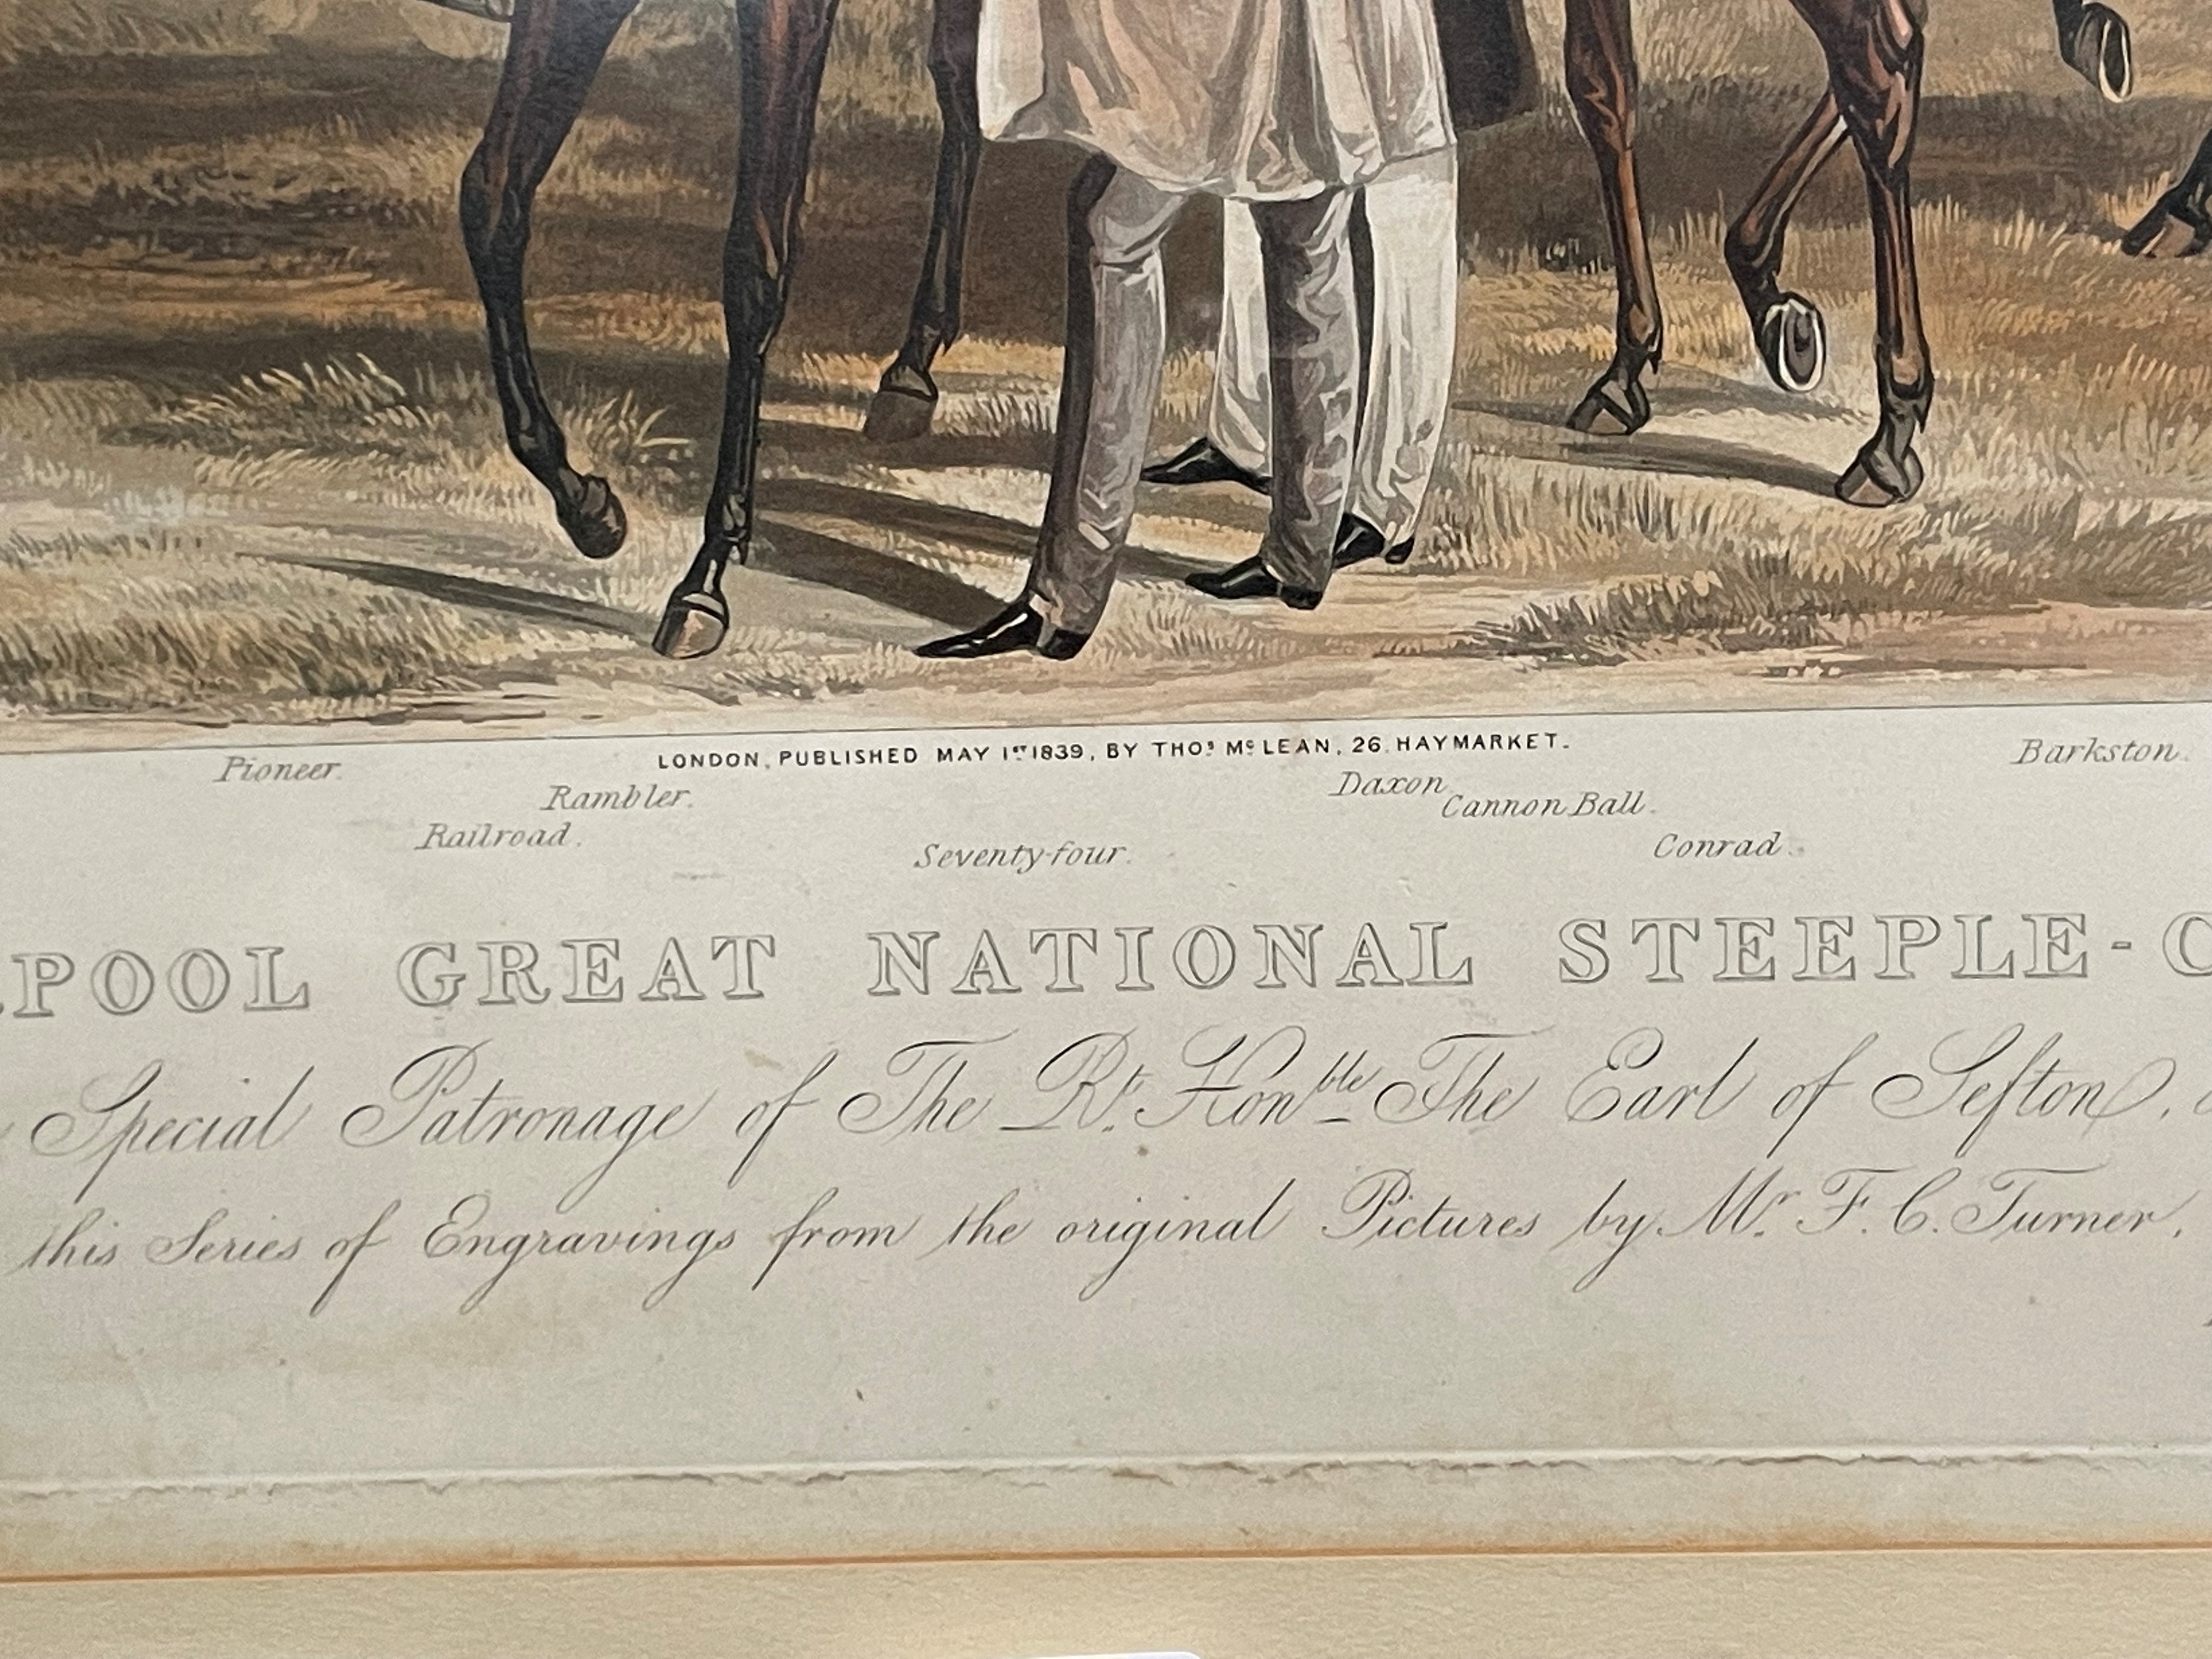 LONDON, PUBLISHED MAY 1ST 1839, BY THOS MC LEAN, 26, HAYMARKET.
Pioneer.
Rambler.
Daxon
Cannon Ball.
Barkston.
Railroad.
Seventy-four.
Conrad.
POOL GREAT NATIONAL STEEPLE-C
Special Patronage of The Rt. Honble The Earl of Sefton,
this Series of Engravings from the original Pictures by Mr. F. C. Turner,